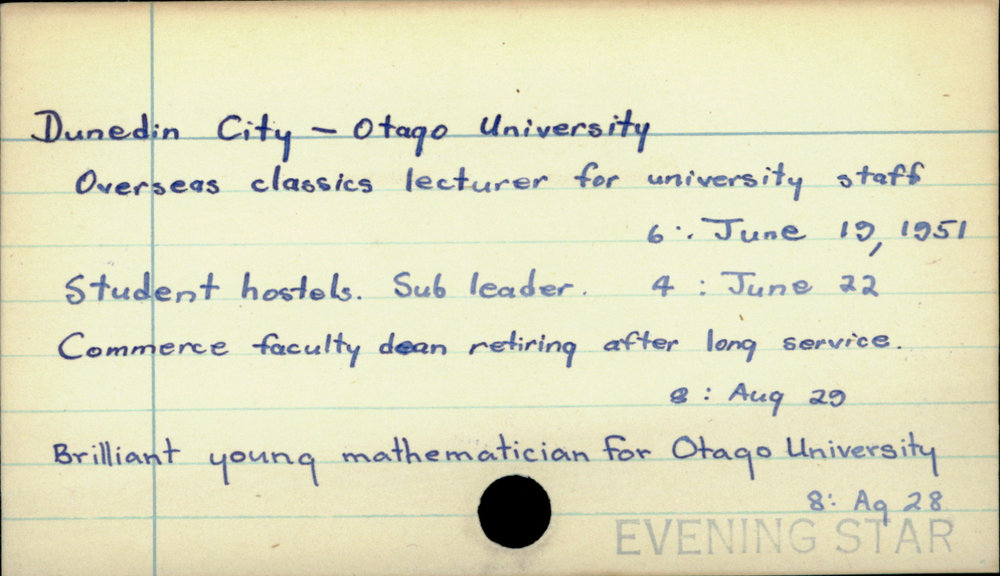 Dunedin City - Otago University
Overseas classics lecturer for university staff
6 : June 19, 1951
Student hostels. Sub leader. 4 : June 22
Commerce faculty dean retiring after long service.
8 : Aug 29
Brilliant young mathematician for Otago University
8: Ag 28
EVENING STAR